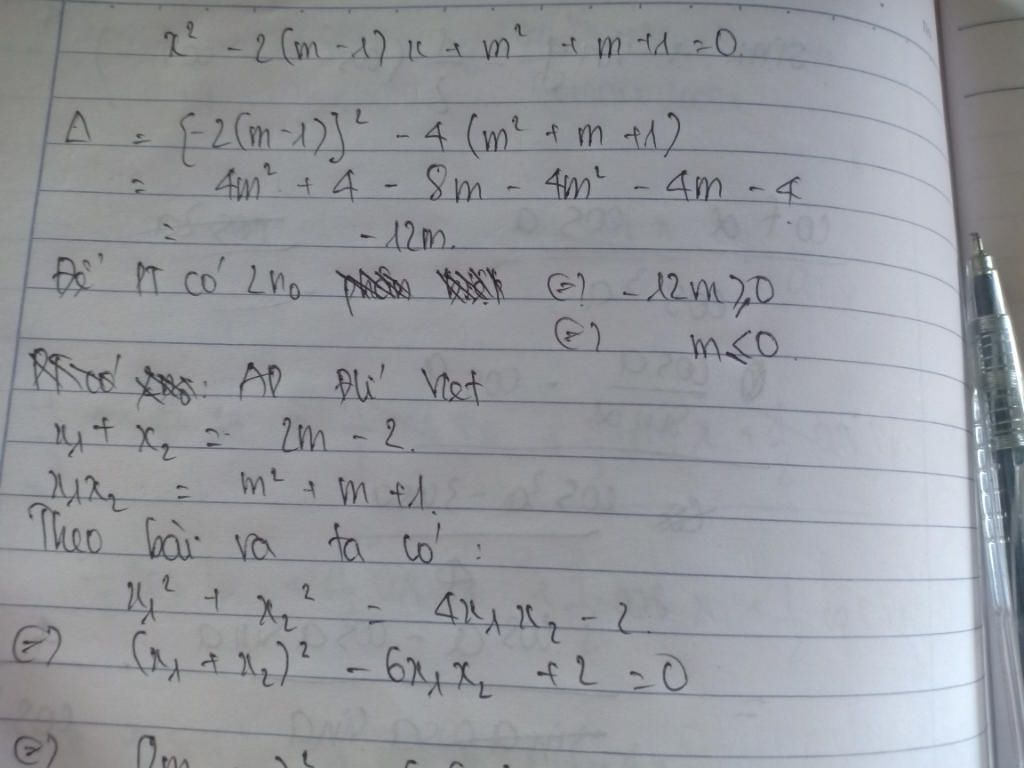 x² - 2(m-1)x + m² + m + 1 = 0
Δ = [-2(m-1)]² - 4(m² + m + 1)
= 4m² + 4 - 8m - 4m² - 4m - 4
= -12m.
Để PT có 2n₀ (=) -12m ≥ 0
(=) m ≤ 0
PT có AD ĐLí Viet
x₁ + x₂ = 2m - 2.
x₁x₂ = m² + m + 1.
Theo bài ra ta có :
x₁² + x₂² = 4x₁x₂ - 2.
(=) (x₁ + x₂)² - 6x₁x₂ + 2 = 0
(=)